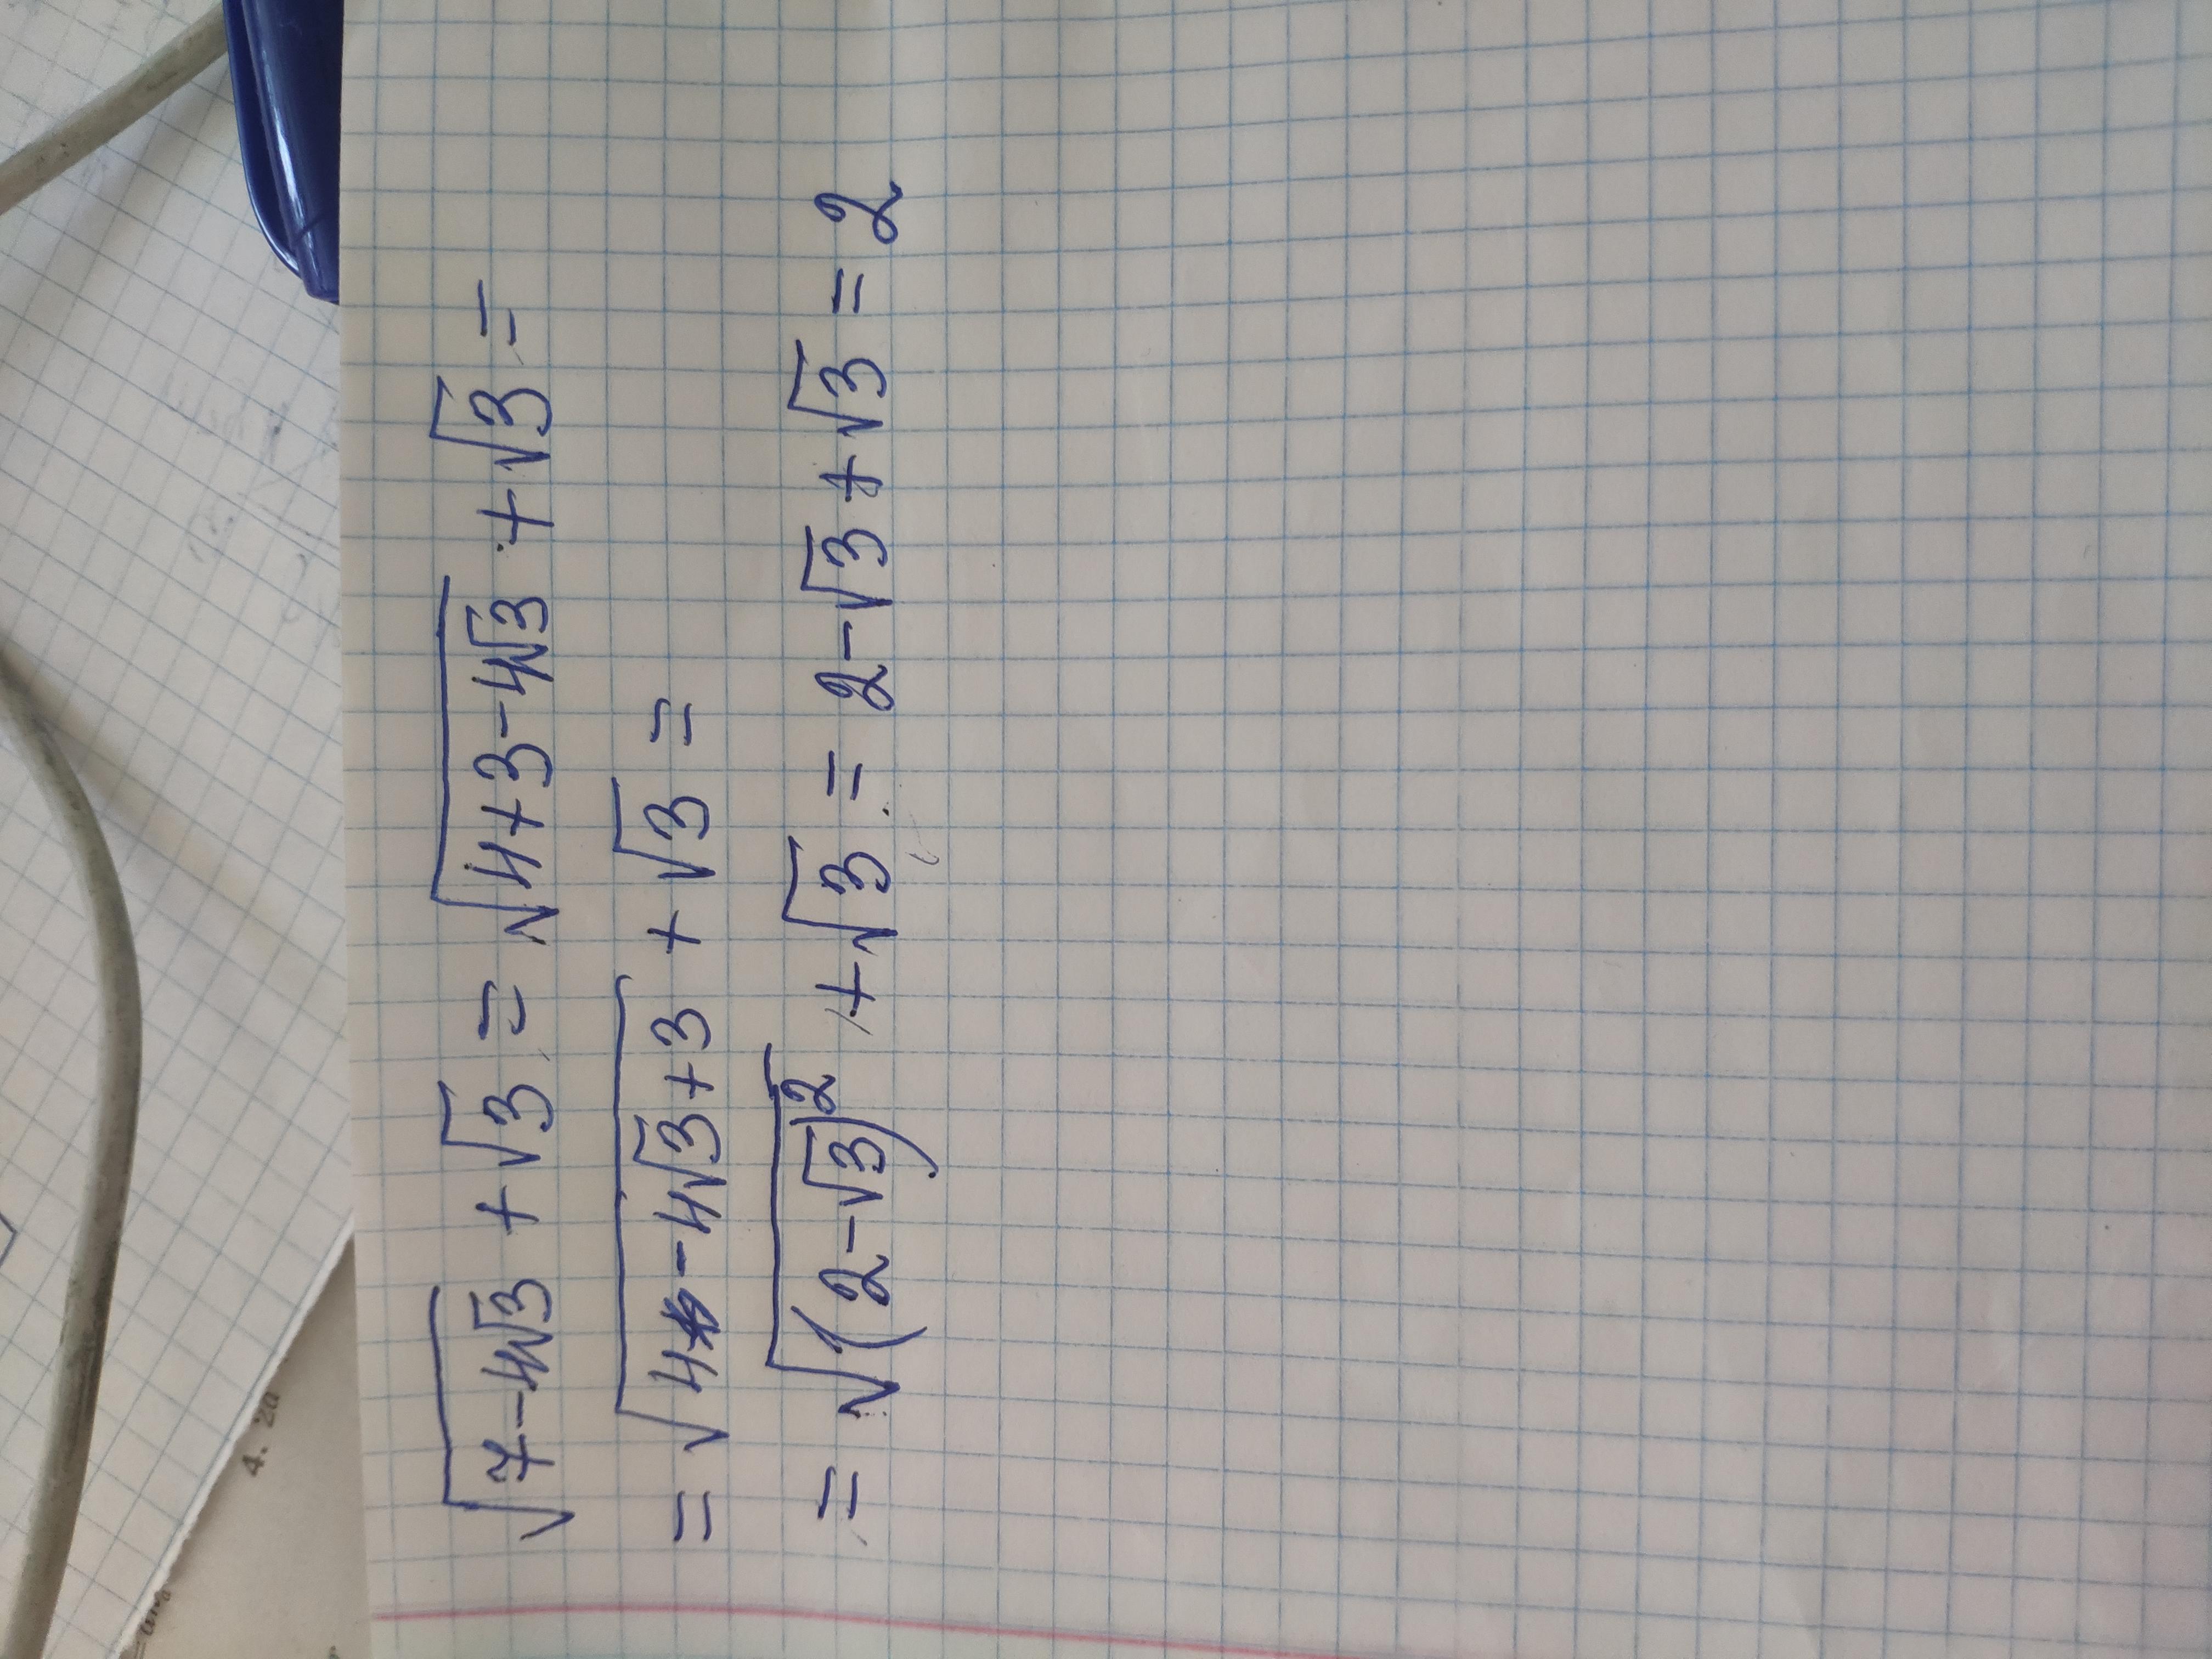 √(7-4√3) + √3 = √(4+3-4√3) + √3 =
= √(4-4√3+3) + √3 =
= √((2-√3)²) + √3 = 2-√3+√3 = 2
4. 20